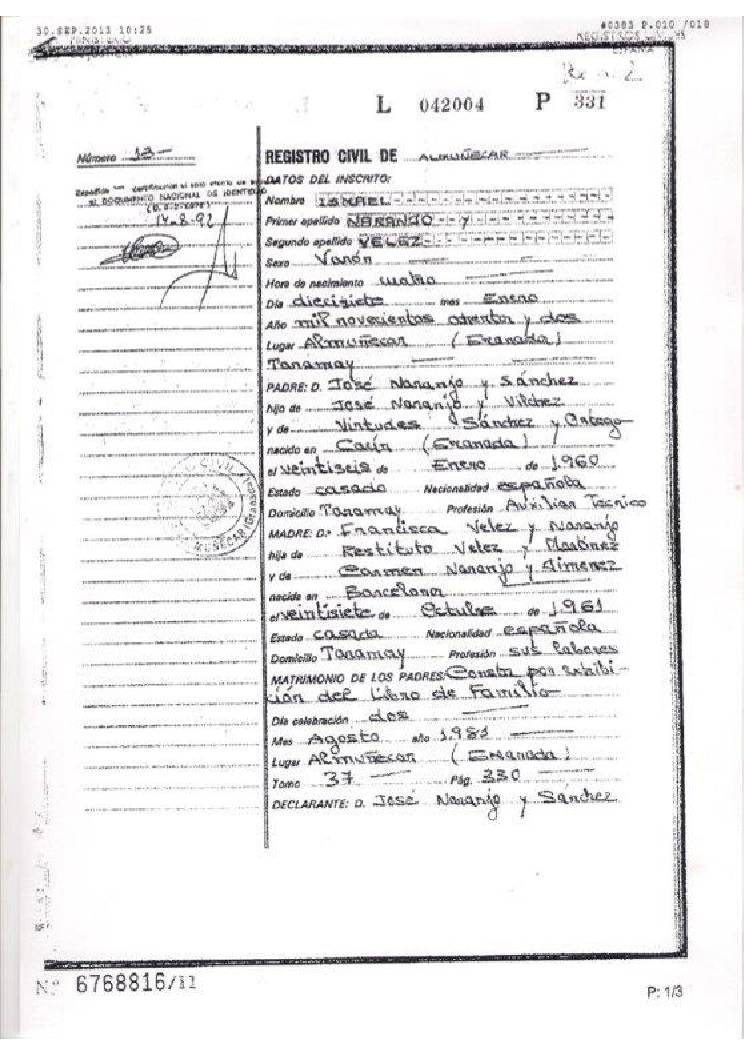 30.SEP.2013 10:25 #0383 P.010 /018
MINISTERIO
REGISTROS CIVILES
ESPAÑA
L 042004 P 331
Número 13
REGISTRO CIVIL DE ALMUÑECAR
AL DOCUMENTO NACIONAL DE IDENTIDAD
17-8-92
DATOS DEL INSCRITO:
Nombre ISMAEL
Primer apellido NARANJO y
Segundo apellido VELEZ
Sexo Varón
Hora de nacimiento cuatro
Día diecisiete mes Enero
Año mil novecientos ochenta y dos
Lugar Almuñecar (Granada)
Taramay
PADRE: D. José Naranjo y Sánchez
hijo de José Naranjo y Vilchez
y de Virtudes Sánchez y Ortega
nacido en (Granada)
el veintiseis de Enero de 1.960
Estado casado Nacionalidad española
Domicilio Taramay Profesión Auxiliar Técnico
MADRE: D.ª Francisca Velez y Naranjo
hija de Restituto Velez y Martinez
y de Carmen Naranjo y Jimenez
nacida en Barcelona
el veintisiete de Octubre de 1.961
Estado casada Nacionalidad española
Domicilio Taramay Profesión sus labores
MATRIMONIO DE LOS PADRES: Consta por exhibi-
ción del Libro de Familia
Día celebración dos
Mes Agosto año 1.981
Lugar Almuñecar (Granada)
Tomo 37 Pág. 330
DECLARANTE: D. José Naranjo y Sánchez
Nº 6768816/11
P: 1/3